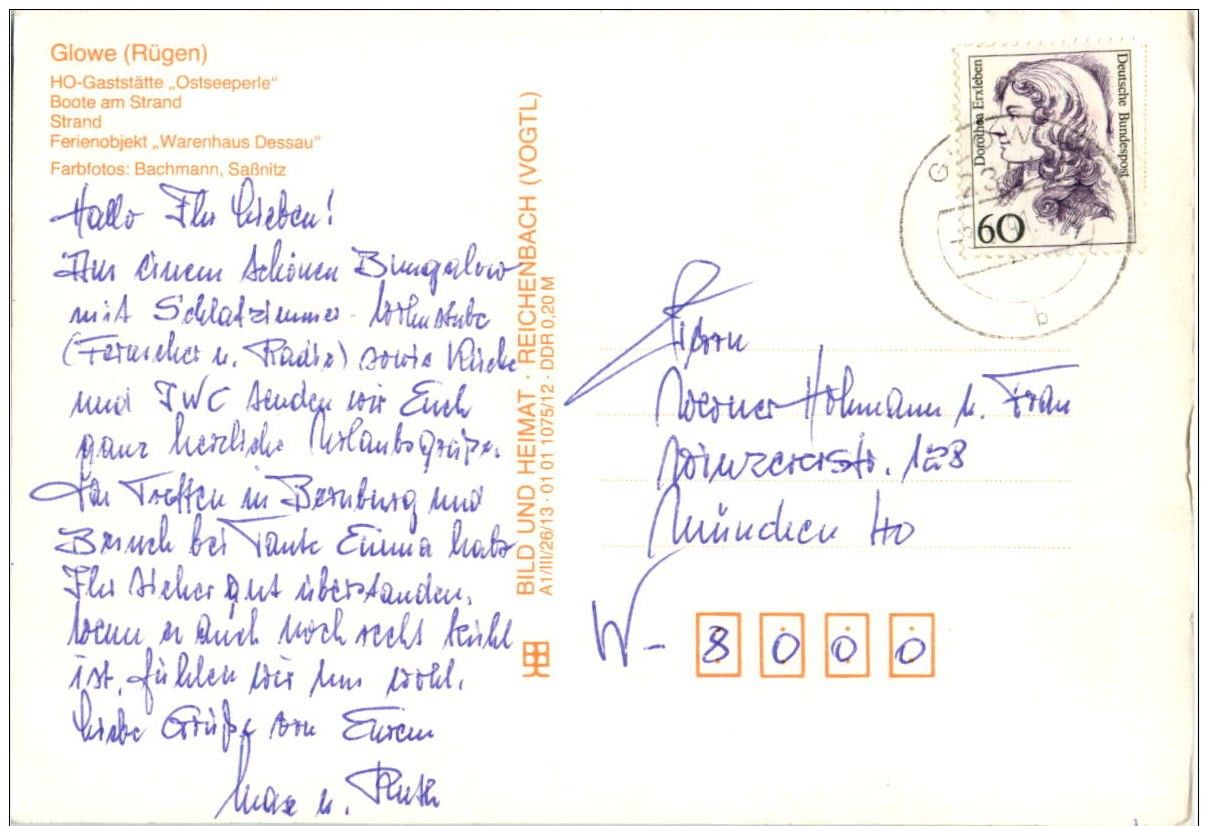 Glowe (Rügen)
HO-Gaststätte „Ostseeperle“
Boote am Strand
Strand
Ferienobjekt „Warenhaus Dessau“
Farbfotos: Bachmann, Saßnitz
Hallo Ihr Lieben!
Aus einem schönen Bungalow
mit Schlafzimmer- Wohnstube
(Fernseher u. Radio) sowie Küche
und IWC senden wir Euch
ganz herzliche Urlaubsgrüße.
Treffen in Bernburg und
Besuch bei Tante Emma habt
Ihr sicher gut überstanden.
Wenn es auch noch recht kühl
ist, fühlen wir uns wohl.
Liebe Grüße von Euren
Max u. Ruth
BILD UND HEIMAT · REICHENBACH (VOGTL)
A1/III/26/13 · 01 01 1075/12 · DDR 0,20 M
Dorothea Erxleben
Deutsche Bundespost
60
b
Werner Hohmann u. Frau
Winzererstr. 128
München 40
W- 8000